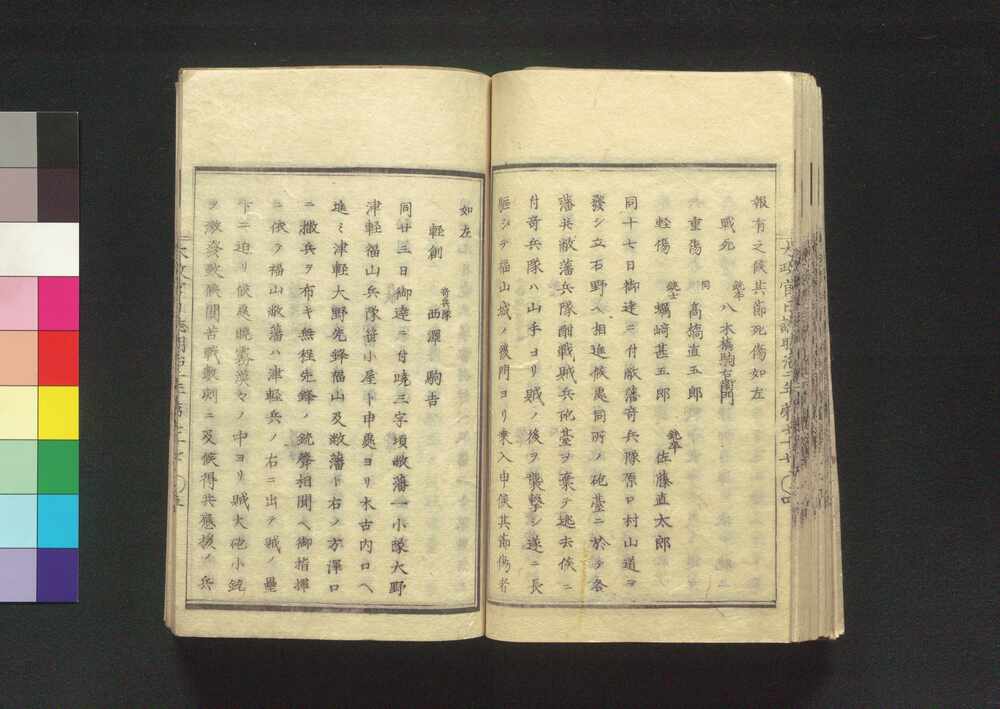 報有之候其節死傷如左
戰死 銃卒 八木橋駒右衛門
重傷 同 髙橋直五郎
輕傷 銃士 蠣崎甚五郎 銃卒 佐藤直太郎
同十七日御達ニ付敝藩奇兵隊原口村山道ヲ
發シ立石野ヘ相進候處同所ノ砲臺ニ於テ各
藩兵敝藩兵隊酣戰賊兵砲臺ヲ棄テ逃去候ニ
付奇兵隊ハ山手ヨリ賊ノ後ヲ襲擊シ遂ニ長
驅シテ福山城ノ後門ヨリ乘入申候其節傷者
太政官日誌明治二年第七十七 〇四
如左
輕創 奇兵隊 西澤駒吉
同廿三日御達ニ付曉三字頃敝藩一小隊大野
津輕福山兵隊笹小屋ト申處ヨリ木古内口ヘ
進ミ津輕大野先鋒福山及敝藩ト右ノ方澤口
ニ撒兵ヲ布キ無程先鋒ノ銃聲相聞ヘ御指揮
ニ依ヲ福山敝藩ハ津輕兵ノ右ニ出テ賊ノ壘
下ニ迫リ候處曉霧漠々ノ中ヨリ賊大砲小銃
ヲ激發致候間苦戰數刻ニ及候得共應援ノ兵